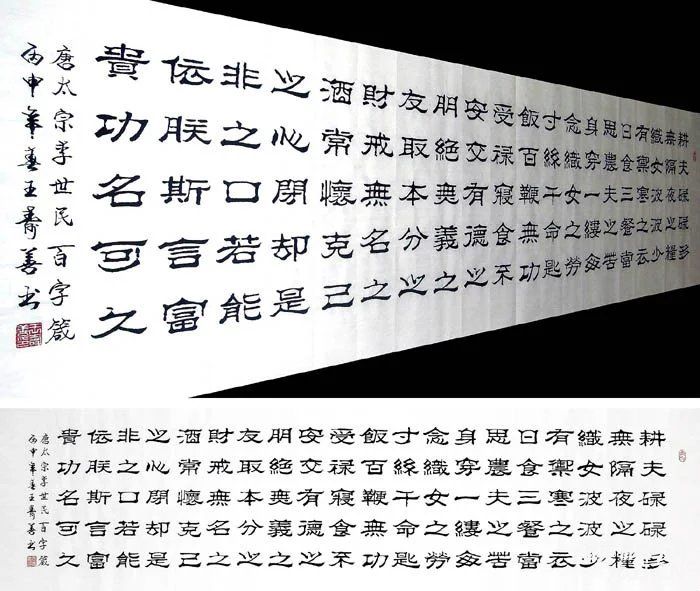 耕夫碌碌多
無隔夜之糧
織女波波少
有禦寒之衣
日食三餐當
思農夫之苦
身穿一縷每
念織女之勞
寸絲千命匙
飯百鞭無功
受禄寢食不
安交有德之
朋絕無義之
友取本分之
財戒無名之
酒常懷克己
之心閉却是
非之口若能
依朕斯言富
貴功名可久
唐太宗李世民百字箴
丙申年王壽善书
耕夫碌碌多
無隔夜之糧
織女波波少
有禦寒之衣
日食三餐當
思農夫之苦
身穿一縷每
念織女之勞
寸絲千命匙
飯百鞭無功
受禄寢食不
安交有德之
朋絕無義之
友取本分之
財戒無名之
酒常懷克己
之心閉却是
非之口若能
依朕斯言富
貴功名可久
唐太宗李世民百字箴
丙申年王壽善书